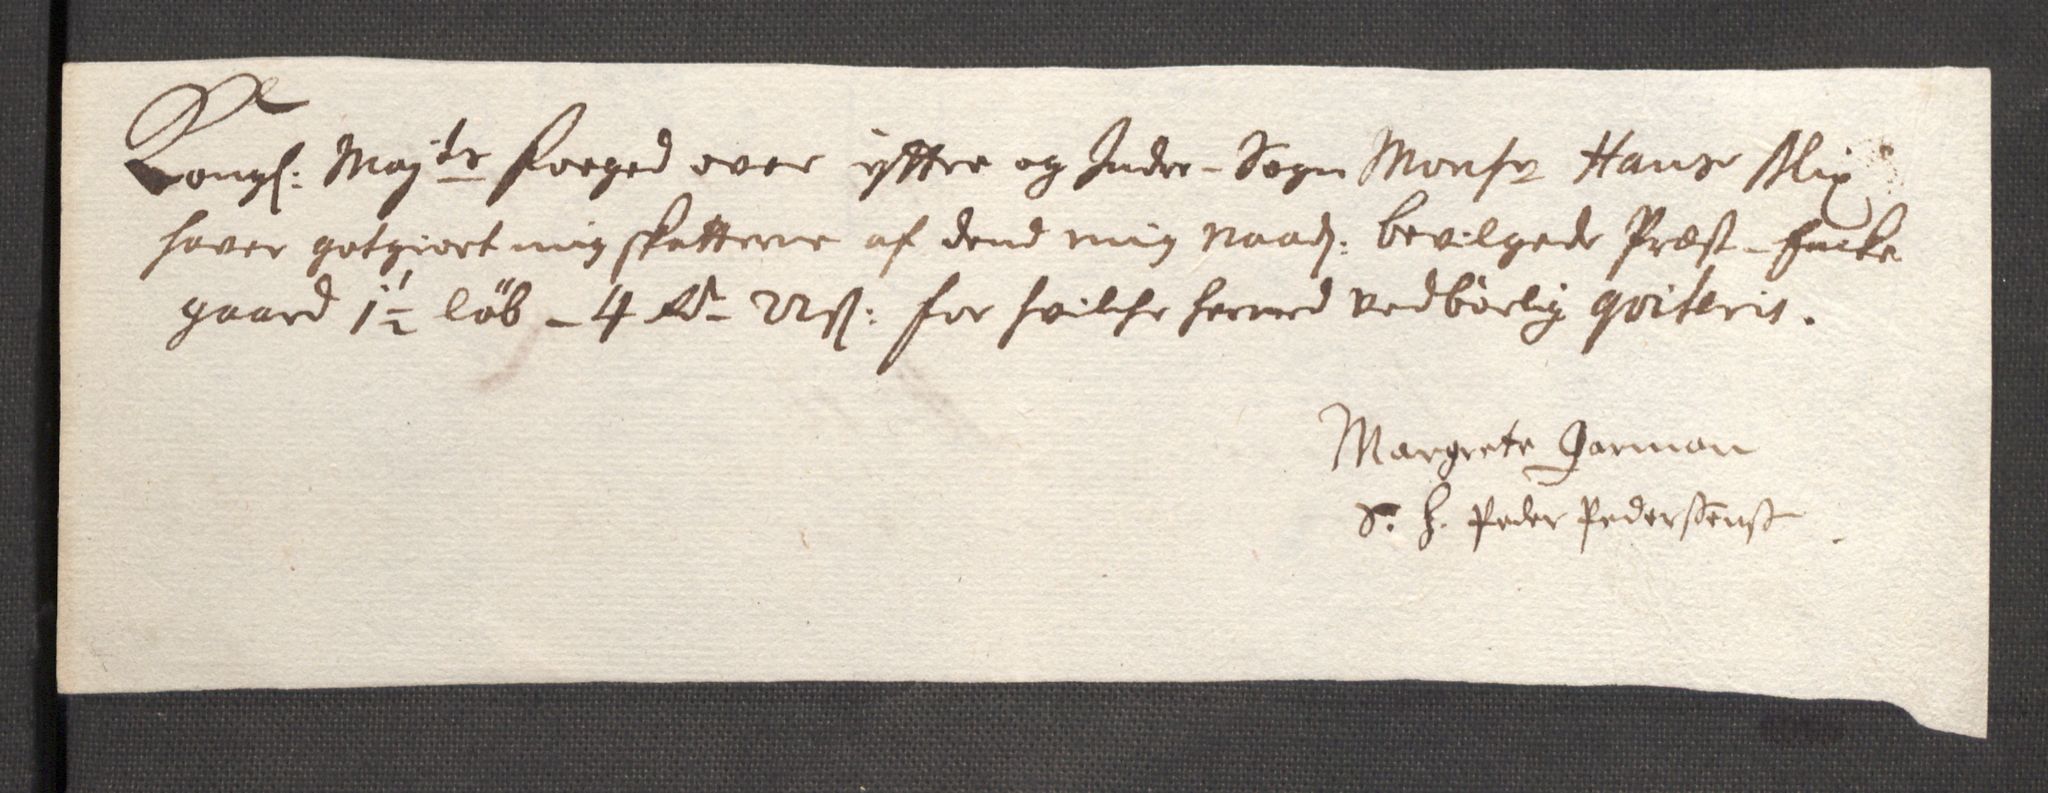 Kongl: Maÿ:ts Foeged over ÿttre og Indre-Sogn Monsr Hans Blix
haver gotgiort mig skatterne af dend mig naadᵍ: bevilgede Præst-Encke
gaard 1½ løb - 4 Rdr 22 ß: for hvilche hermed vedbørlig qviteris.
Margrete Garman
S. H. Peder Pederssens